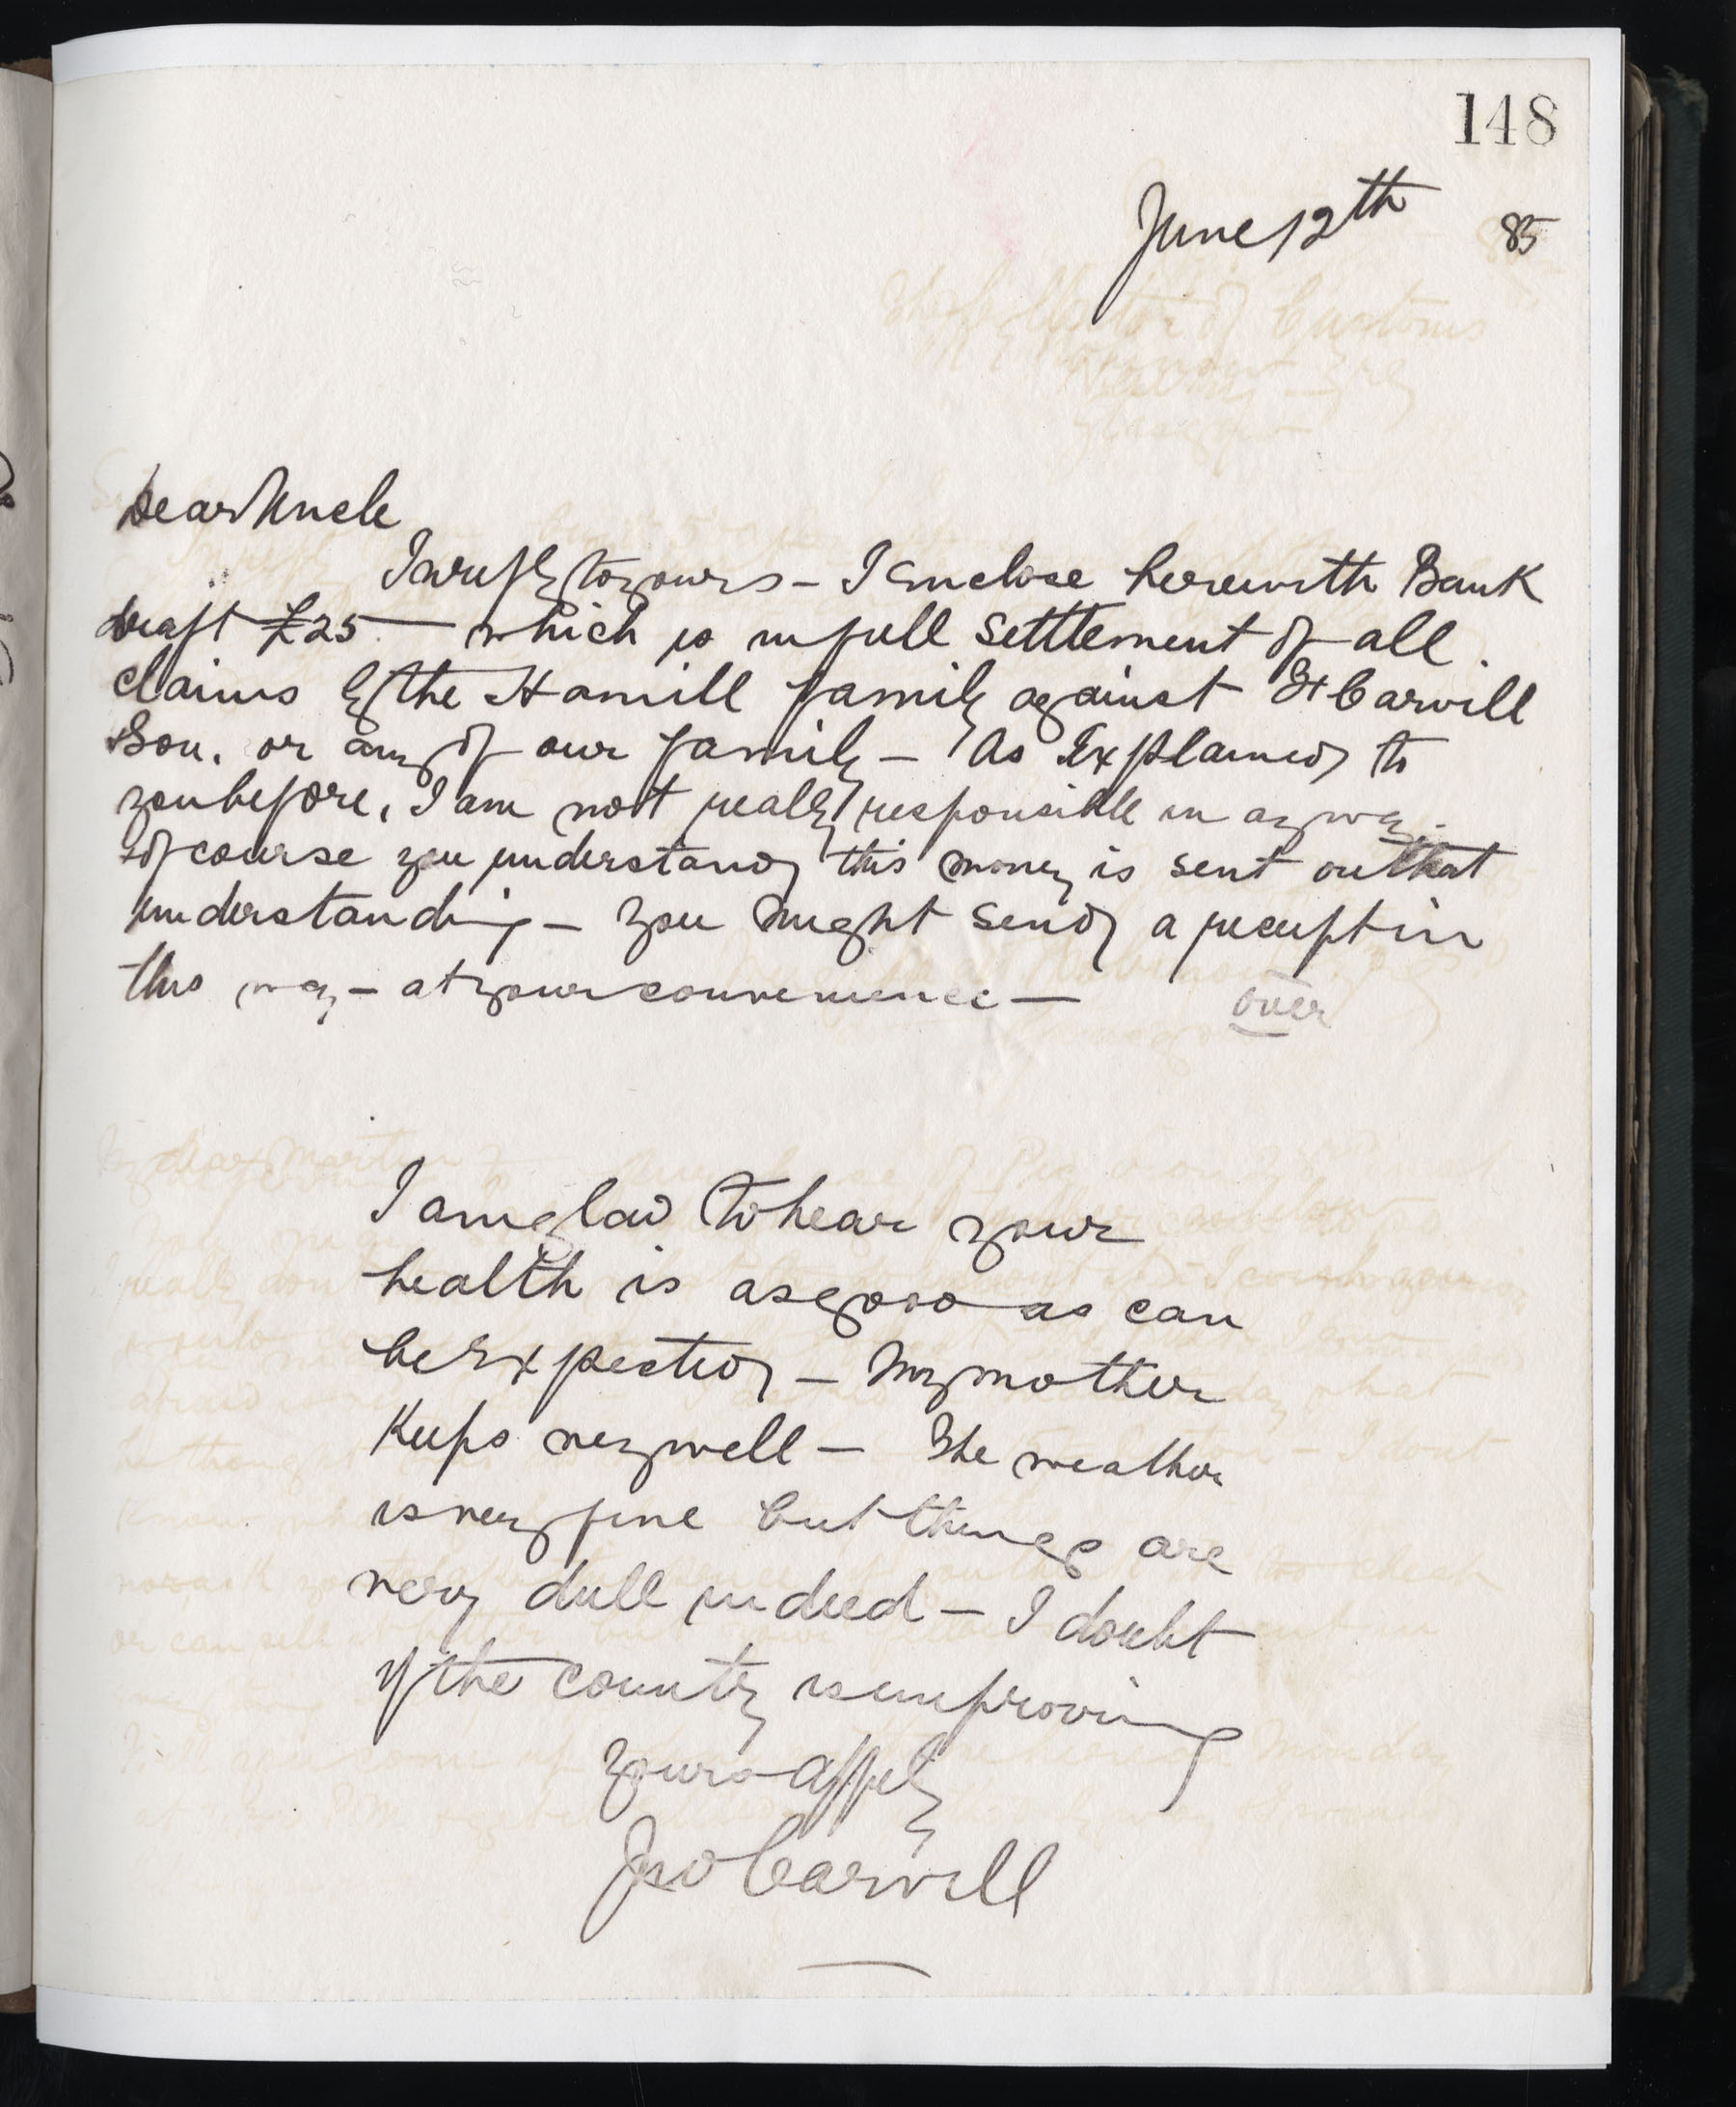 148
June 12th 85
Dear Uncle
In reply to yours - I enclose herewith Bank
draft £25 — which is in full settlement of all
claims by the Hamill family against F Carvill
Son. or any of our family - As Explained to
you before, I am not really responsible in any way.
Of course you understand this money is sent on that
understanding - You might send a receipt in
this way - at your convenience —
over
I am glad to hear your
health is as good as can
be Expected - My mother
Keeps very well - The weather
is very fine but things are
very dull indeed - I doubt
if the country is improving
Yours affly
Jno Carvill